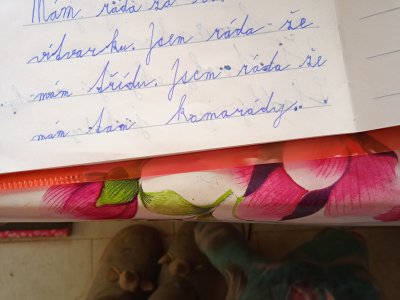 Mám ráda
výtvarku. Jsem ráda že
mám třídu. Jsem ráda že
mám tam kamarády.